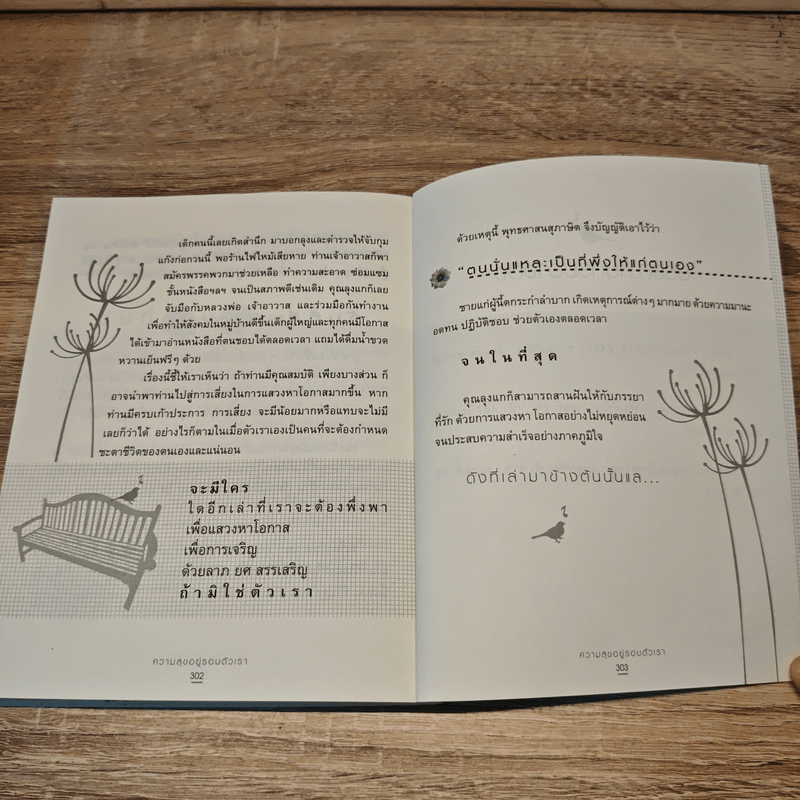 เด็กคนนี้เลยเกิดสำนึก มาบอกลุงและตำรวจให้จับกุม
แก๊งก่อกวนนี้ พอร้านไฟไหม้เสียหาย ท่านเจ้าอาวาสก็พา
สมัครพรรคพวกมาช่วยเหลือ ทำความสะอาด ซ่อมแซม
ชั้นหนังสือฯลฯ จนเป็นสภาพดีเช่นเดิม คุณลุงแกก็เลย
จับมือกับหลวงพ่อ เจ้าอาวาส และร่วมมือกันทำงาน
เพื่อทำให้สังคมในหมู่บ้านดีขึ้นเด็กผู้ใหญ่และทุกคนมีโอกาส
ได้เข้ามาอ่านหนังสือที่ตนชอบได้ตลอดเวลา แถมได้ดื่มน้ำขวด
หวานเย็นฟรีๆ ด้วย
เรื่องนี้ชี้ให้เราเห็นว่า ถ้าท่านมีคุณสมบัติ เพียงบางส่วน ก็
อาจนำพาท่านไปสู่การเสี่ยงในการแสวงหาโอกาสมากขึ้น หาก
ท่านมีครบเก้าประการ การเสี่ยง จะมีน้อยมากหรือแทบจะไม่มี
เลยก็ว่าได้ อย่างไรก็ตามในเมื่อตัวเราเองเป็นคนที่จะต้องกำหนด
ชะตาชีวิตของตนเองและแน่นอน
จะมีใคร
ใดอีกเล่าที่เราจะต้องพึ่งพา
เพื่อแสวงหาโอกาส
เพื่อการเจริญ
ด้วยลาภ ยศ สรรเสริญ
ถ้ามิใช่ตัวเรา
ความสุขอยู่รอบตัวเรา
302
ด้วยเหตุนี้ พุทธศาสนสุภาษิต จึงบัญญัติเอาไว้ว่า
“ตนนั่นแหละเป็นที่พึ่งให้แก่ตนเอง”
ชายแก่ผู้นี้ตกระกำลำบาก เกิดเหตุการณ์ต่างๆ มากมาย ด้วยความมานะ
อดทน ปฏิบัติชอบ ช่วยตัวเองตลอดเวลา
จนในที่สุด
คุณลุงแกก็สามารถสานฝันให้กับภรรยา
ที่รัก ด้วยการแสวงหา โอกาสอย่างไม่หยุดหย่อน
จนประสบความสำเร็จอย่างภาคภูมิใจ
ดังที่เล่ามาข้างต้นนั้นแล...
ความสุขอยู่รอบตัวเรา
303